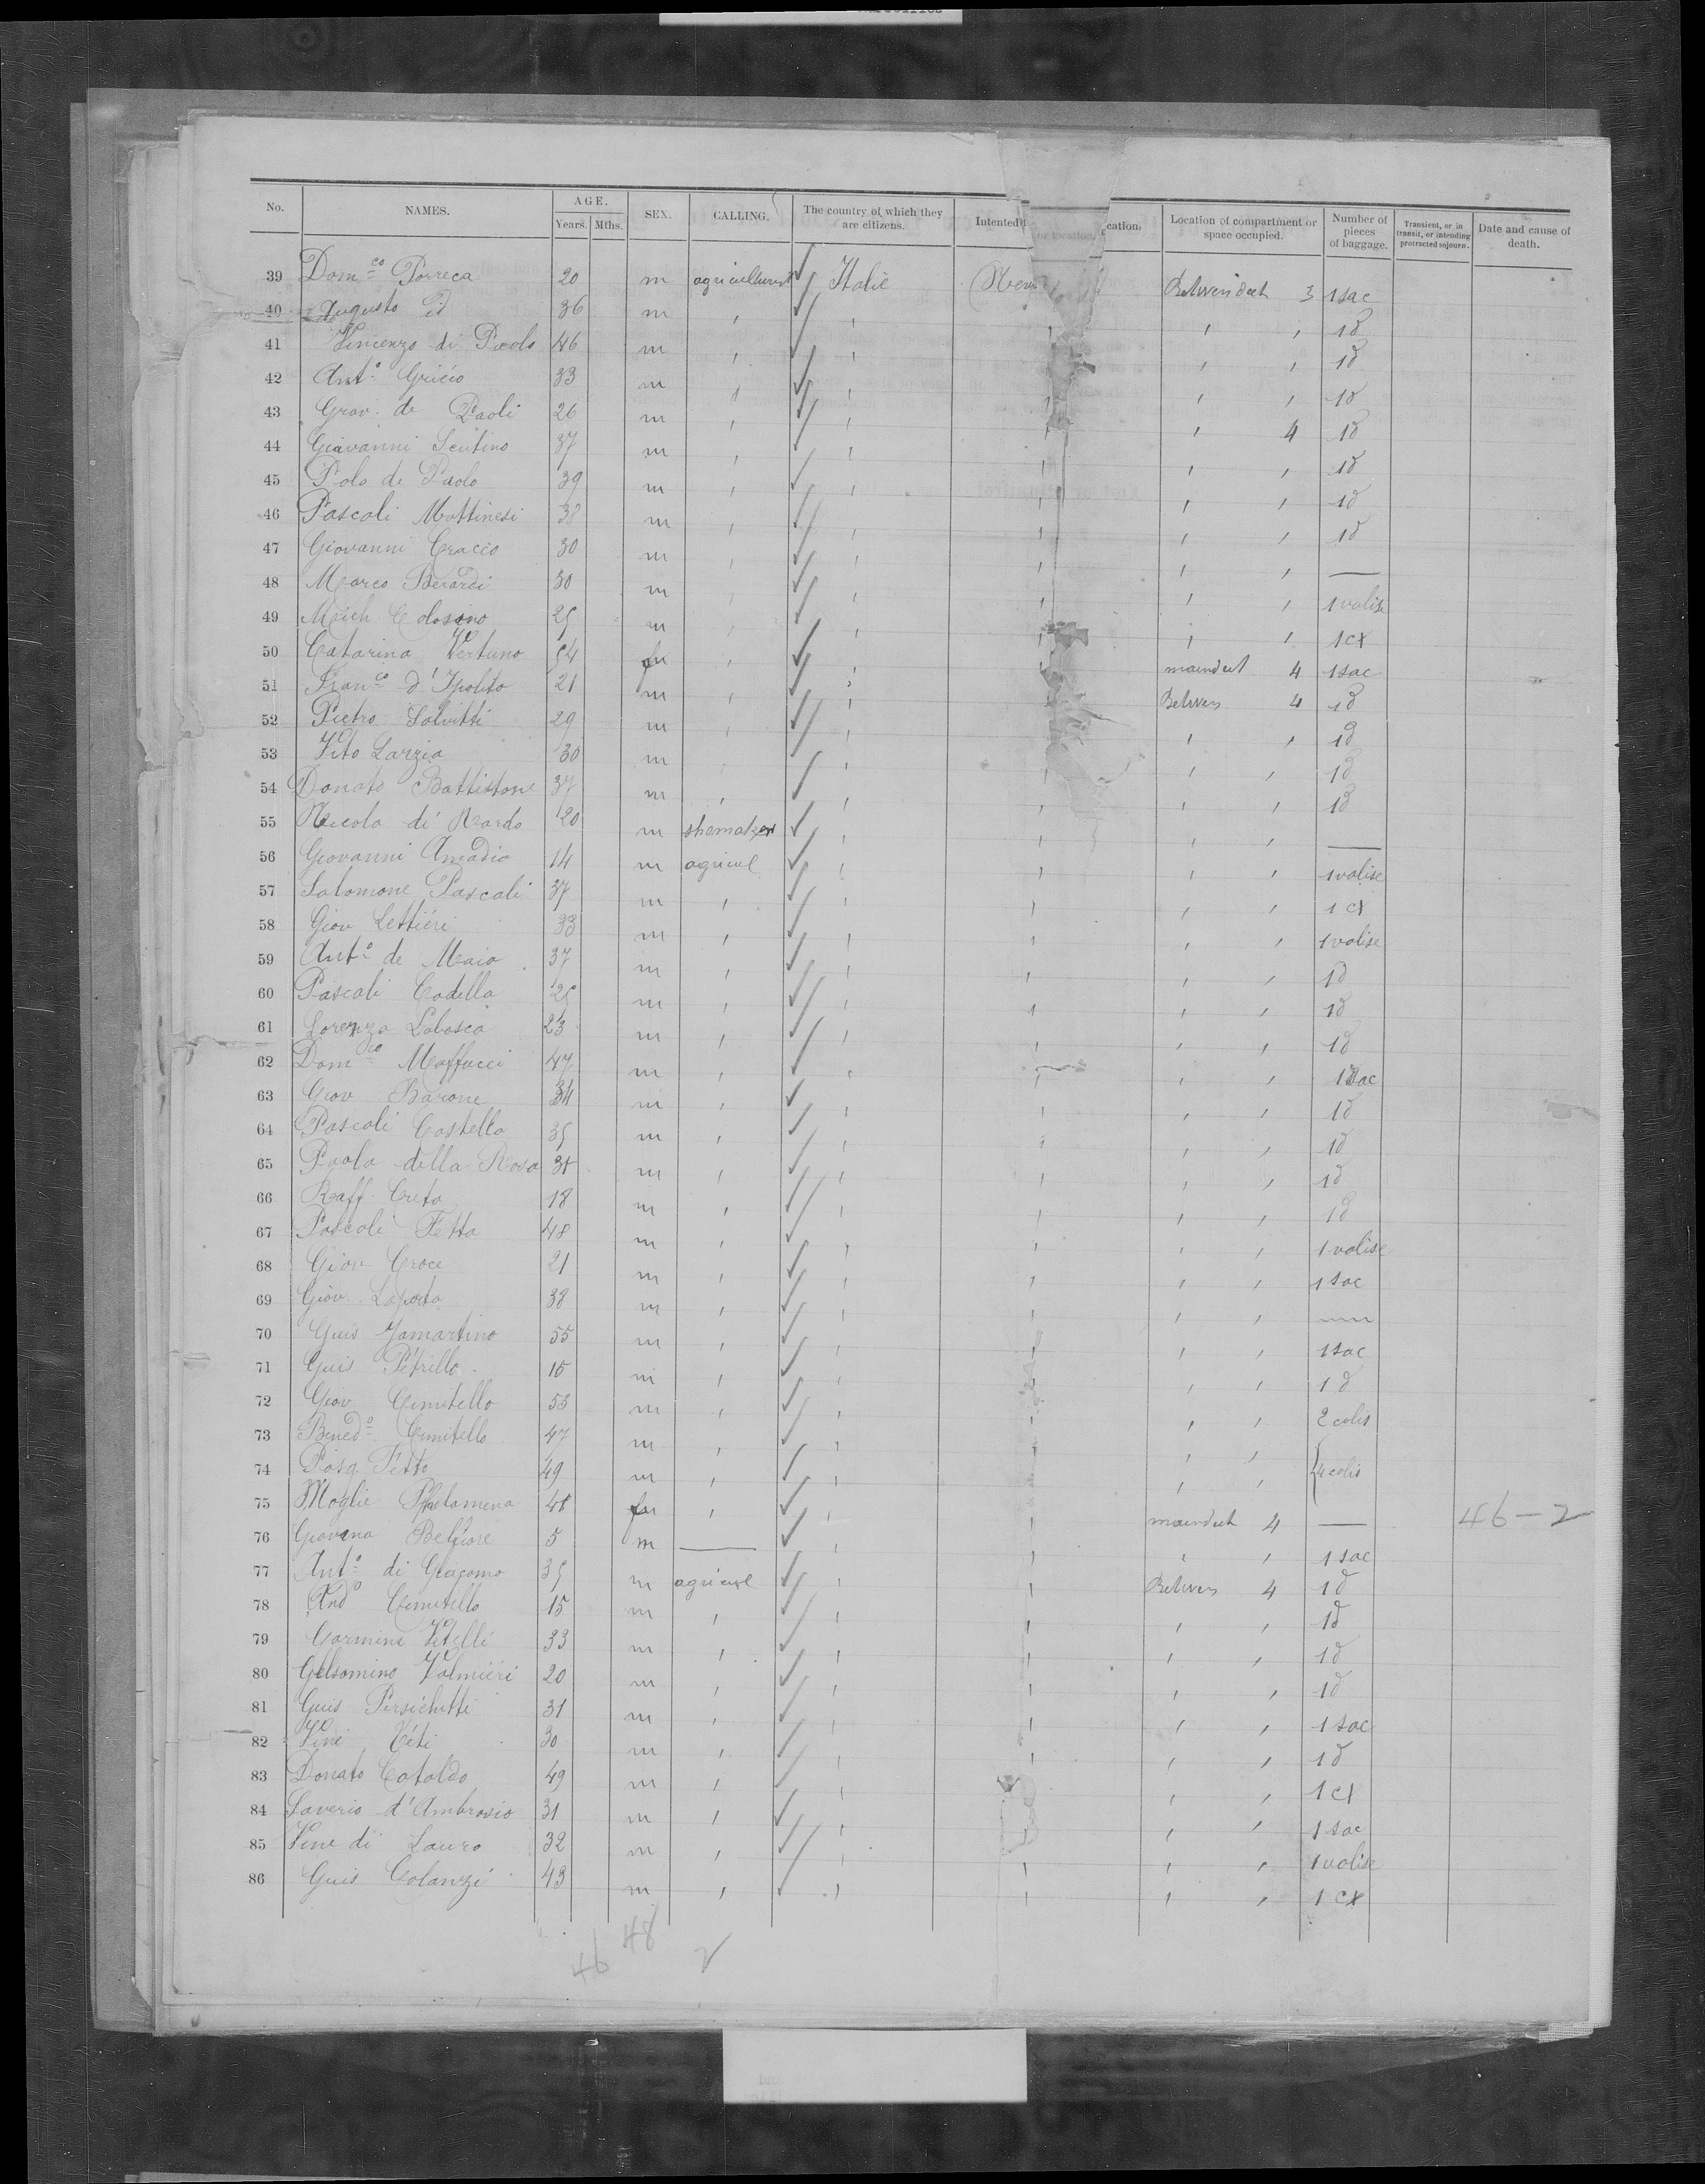 No. NAMES. AGE. Years. Mths. SEX. CALLING. The country of which they are citizens. Intented or location. cation. Location of compartment or space occupied. Number of pieces of baggage. Transient, or in transit, or intending protracted sojourn. Date and cause of death.
39 Dom.co Porreca 20 m agriculturist Italie New Betweendeck 3 1 sac
40 Augusto id 36 m , , , , , 1d
41 Vincenzo di Paolo 46 m , , , , , 1d
42 Anto. Griéco 33 m , , , , , 1d
43 Giov. de Paoli 26 m , , , , 4 1d
44 Giavanni Scutino 37 m , , , , , 1d
45 Polo de Paolo 39 m , , , , , 1d
46 Pascali Mattinesi 38 m , , , , , 1d
47 Giovanni Cracco 30 m , , , , , —
48 Marco Berardi 30 m , , , , , 1 valise
49 Mich Colosono 25 m , , , , , 1 cx
50 Catarina Vertuno 54 fm , , , maindeck 4 1 sac
51 Franco d'Ipolito 21 m , , , Betwen 4 1d
52 Pietro Salvitti 29 m , , , , , 1d
53 Vito Larzia 30 m , , , , , 1d
54 Donato Battistone 37 m , , , , , 1d
55 Nicola di Nardo 20 m shomaker , , , , —
56 Giovanni Amadio 14 m agricul , , , , 1 valise
57 Salomone Pascali 37 m , , , , , 1 cx
58 Giov Lettiéri 33 m , , , , , 1 valise
59 Anto. de Maio 37 m , , , , , 1d
60 Pascali Codella 25 m , , , , , 1d
61 Lorenzo Labasca 23 m , , , , , 1d
62 Dom.co Maffucci 47 m , , , , , 1 sac
63 Giov Barone 34 m , , , , , 1d
64 Pascali Costello 35 m , , , , , 1d
65 Paolo della Rosa 38 m , , , , , 1d
66 Raff. Creta 18 m , , , , , 1d
67 Pascoli Fetta 48 m , , , , , 1 valise
68 Giov. Croce 21 m , , , , , 1 sac
69 Giov. Laporta 38 m , , , , ,
70 Guis Jamartino 55 m , , , , , 1 sac
71 Guis Pétrillo 15 m , , , , , 1d
72 Giov Cimitello 53 m , , , , , 2 colis
73 Benedo. Cimitello 47 m , , , , ,
74 Pasq. Fetto 49 m , , , , , 4 colis
75 Moglie Philomena 48 fm , , , maindeck 4 — 46-2
76 Giovana Belfiore 5 m — , , , , 1 sac
77 Anto. di Giacomo 35 m agricul , , Betwen 4 1d
78 Ando Cimitello 15 m , , , , , 1d
79 Garmina Vitelli 33 m , , , , , 1d
80 Gelsomino Valmiéri 20 m , , , , , 1d
81 Guis Persichitti 31 m , , , , , 1 sac
82 Vine Céti 30 m , , , , , 1d
83 Donato Cataldo 49 m , , , , , 1 cx
84 Saverio d'Ambrosio 31 m , , , , , 1 sac
85 Vine di Lauro 32 m , , , , , 1 valise
86 Guis Colanzi 43 m , , , , , 1 cx
46 48 2